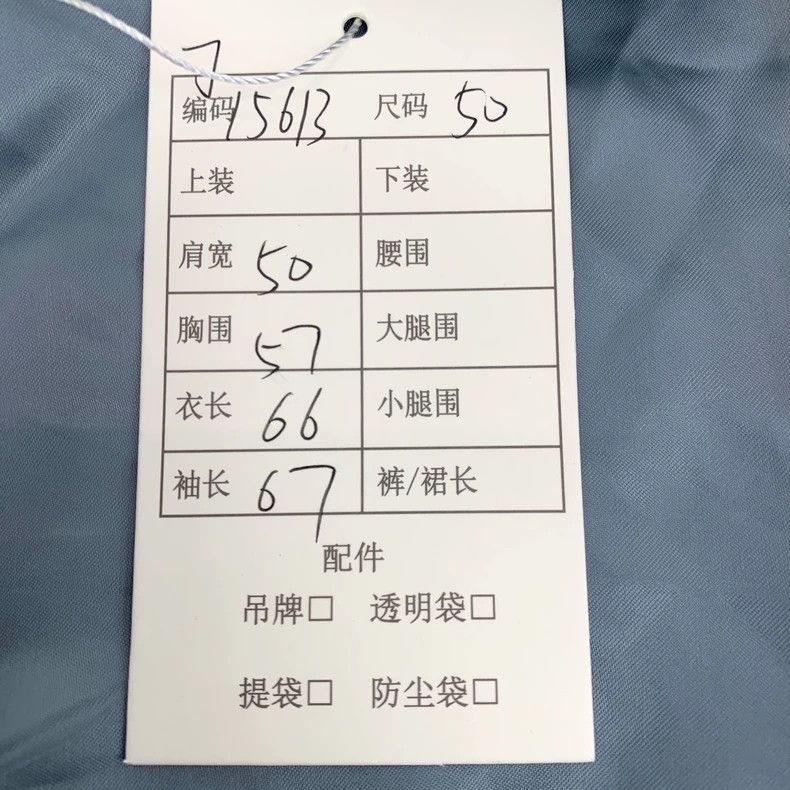 编码 15613 尺码 50
上装 下装
肩宽 50 腰围
胸围 57 大腿围
衣长 66 小腿围
袖长 67 裤/裙长
配件
吊牌□ 透明袋□
提袋□ 防尘袋□